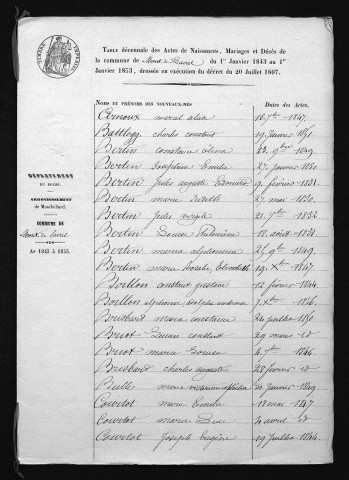 TIMBRE IMPÉRIAL
TABLE décennale des Actes de Naissances, Mariages et Décès de
la commune de Mont de Laval du 1er Janvier 1843 au 1er
Janvier 1853, dressée en exécution du décret du 20 Juillet 1807.
DÉPARTEMENT
DU DOUBS.
ARRONDISSEMENT
de Montbéliard.
COMMUNE DE
Mont de Laval
An 1843 à 1853.
NOMS ET PRÉNOMS DES NOUVEAUX-NÉS Dates des Actes.
Arnoux marcel 16 7bre 1847.
Battlogg charles constant 19 janvier 1851.
Bertin constance 22 9bre 1849
Bertin Josephine Emilie 27 janvier 1850
Bertin jules auguste Edmond 9 février 1851.
Bertin marie 27 mai 1850.
Bertin jules 21 7bre 1852
Bertin Louise Philomène 18 août 1851
Bertin maria alphonsine 25 9bre 1849.
Bertin marie 19 Xbre 1847
Boillon constant justin 12 février 1844.
Boillon alphonse 7 Xbre 1846.
Brisbard maria constance 24 juillet 1850
Briot constant 29 mars id
Briot maria Louise 4 1846
Brisbard charles auguste 28 février id
Bulle marie 20 janvier 1849
Courtot marie Emilie 18 mai 1847
Courtot marie 4 avril id
Courtot Joseph Eugène 19 juillet 1844.